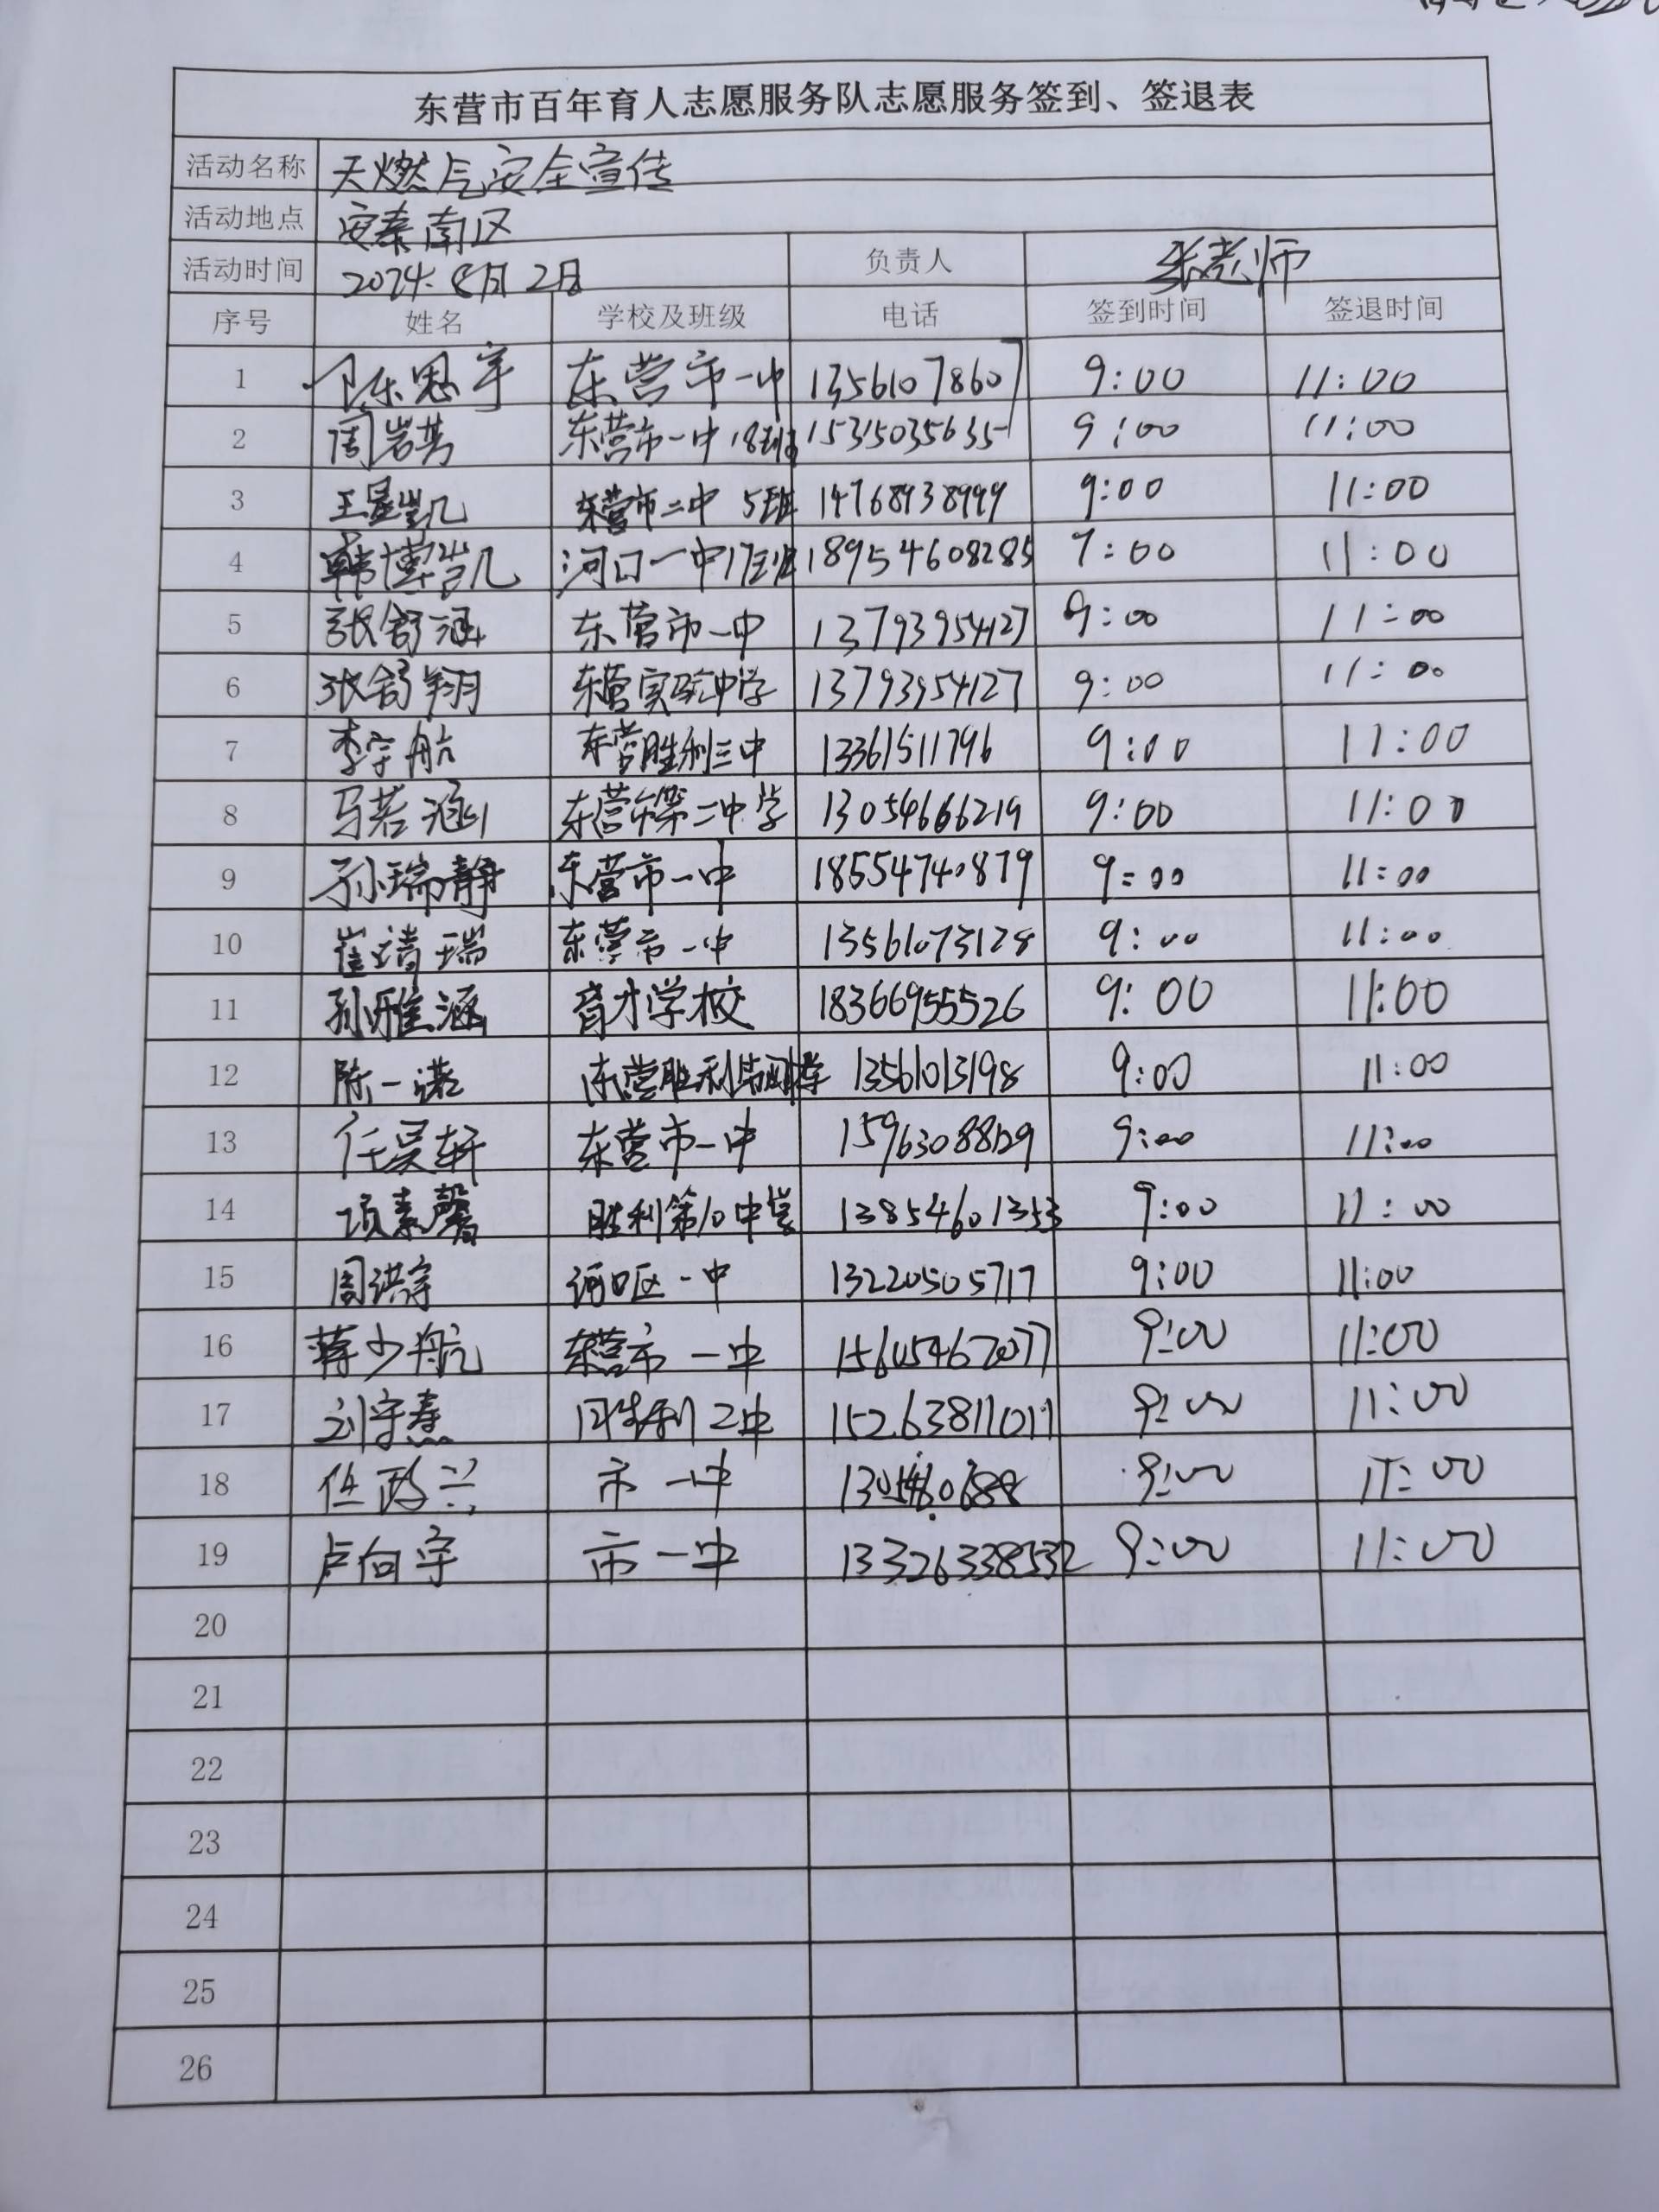 东营市百年育人志愿服务队志愿服务签到、签退表
活动名称 天燃气安全宣传
活动地点 安泰南区
活动时间 2024.8月2日 负责人 张老师
序号 姓名 学校及班级 电话 签到时间 签退时间
1 陈思宇 东营市一中 13561078607 9:00 11:00
2 周岩 东营市一中18班 15315035635 9:00 11:00
3 王星凯 东营市二中 5班 14768938999 9:00 11:00
4 韩博凯 河口一中17班 18954608285 9:00 11:00
5 张舒涵 东营市一中 13793954127 9:00 11:00
6 张舒翔 东营实验中学 13793954127 9:00 11:00
7 李宇航 东营胜利三中 13361511796 9:00 11:00
8 马若涵 东营市第二中学 13054666219 9:00 11:00
9 孙瑞静 东营市一中 18554740879 9:00 11:00
10 崔靖瑞 东营市一中 13561073128 9:00 11:00
11 孙雅涵 育才学校 18366955526 9:00 11:00
12 陈一诺 东营胜利 13561013198 9:00 11:00
13 任昊轩 东营市一中 15963088129 9:00 11:00
14 项素馨 胜利第10中学 13854601353 9:00 11:00
15 周洪宇 河口区一中 13220505717 9:00 11:00
16 蒋少航 东营市一中 15605462077 9:00 11:00
17 刘宇熹 胜利二中 15263811011 9:00 11:00
18 任政兴 市一中 9:00 11:00
19 卢向宇 市一中 13326338532 9:00 11:00
20
21
22
23
24
25
26